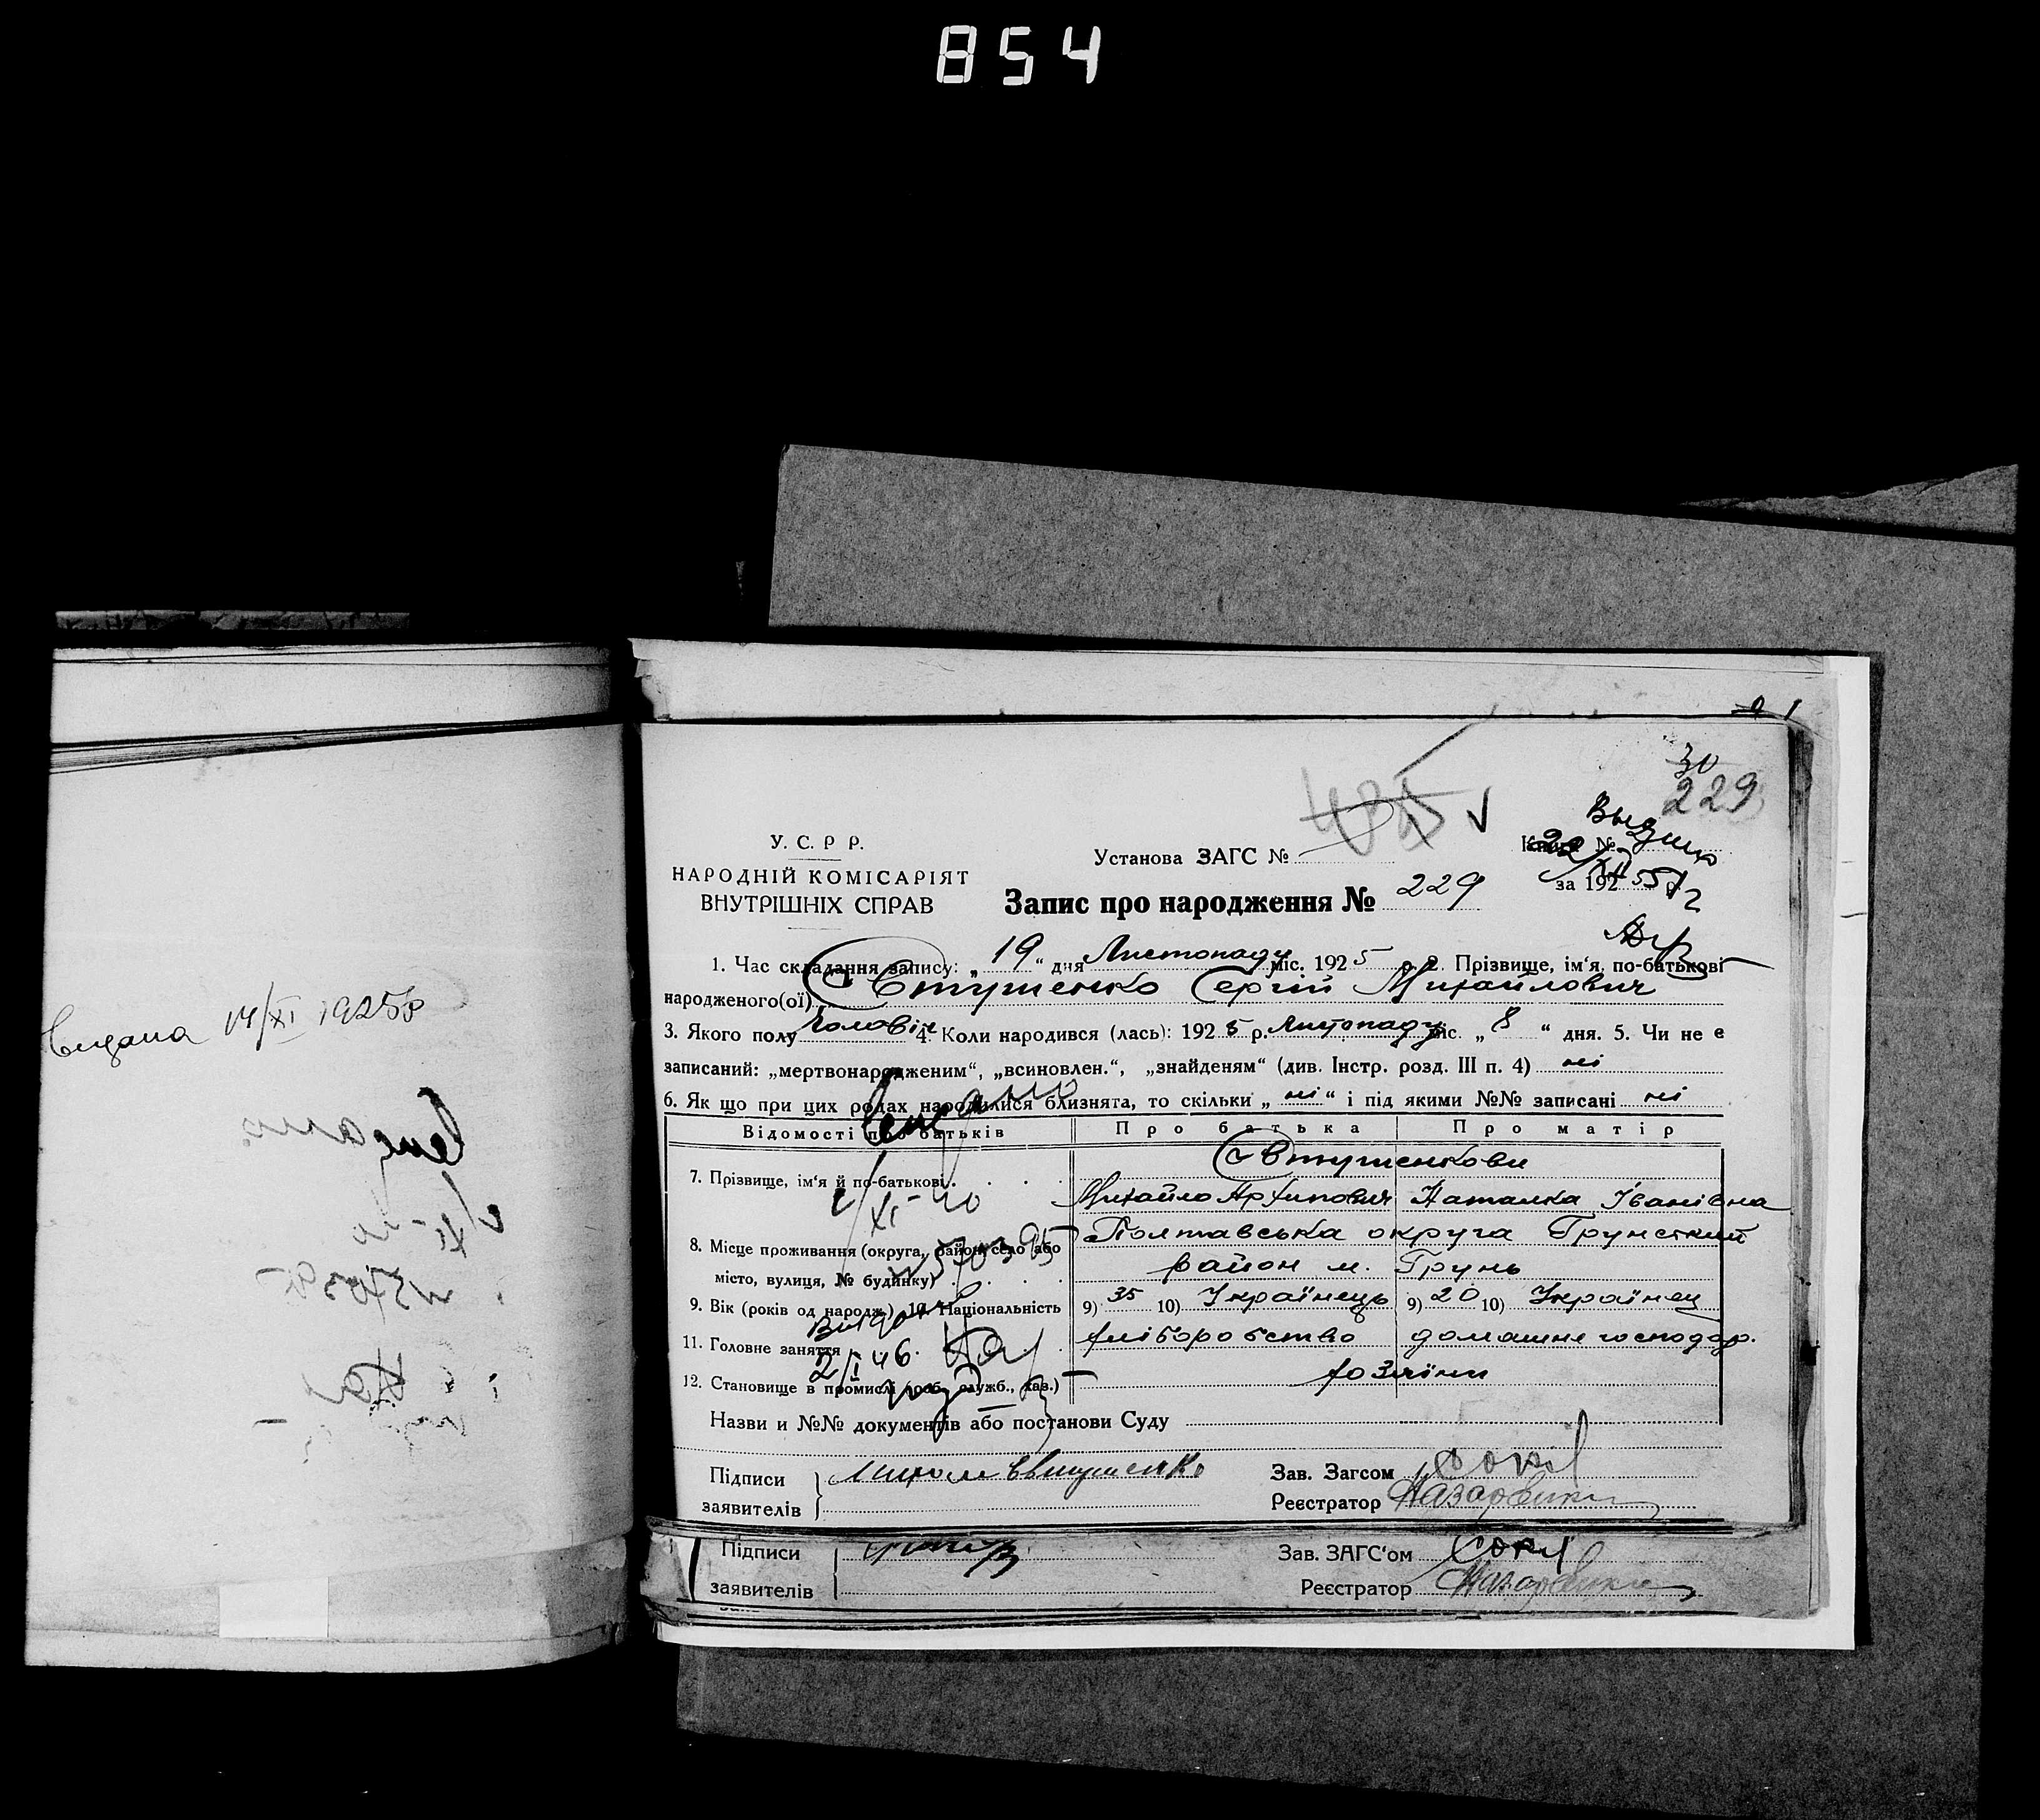 854
Видана 14/XI 1925 р
229
485
У. С. Р Р.
НАРОДНІЙ КОМІСАРІЯТ
ВНУТРІШНІХ СПРАВ
Установа ЗАГС №
Запис про народження № 229
Книга №
за 192 5 р.
1. Час складання запису: „ 19 “ дня Листопаду міс. 192 5 р. 2. Прізвище, ім‘я, по-батькові
народженого(ої) Євтушенко Сергій Михайлович
3. Якого полу чоловіч 4. Коли народився (лась): 192 5 р. Листопаду міс. „ 8 “ дня. 5. Чи не є
записаний: „мертвонародженим“, „всиновлен.“, „знайденям“ (див. Інстр. розд. III п. 4) ні
6. Як що при цих родах народилися близнята, то скільки „ ні “ і під якими №№ записані ні
Відомості про батьків Про батька Про матір
Євтушенкови
7. Прізвище, ім‘я й по-батькові Михайло Архипович Наталка Іванівна
8. Місце проживання (округа, район, село або Полтавська округа Грунський
місто, вулиця, № будинку) район м. Грунь
9. Вік (років од народж.) 10. Національність 9) 35 10) Українець 9) 20 10) Українец
11. Головне заняття хліборобство домашнє господар.
12. Становище в промислі (роб., служб., хаз.) хозяїни
Назви и №№ документів або постанови Суду
Підписи Евтушенко Зав. Загсом Сокіл
заявителів Реєстратор
Підписи Зав. ЗАГС‘ом Сокіл
заявителів Реєстратор